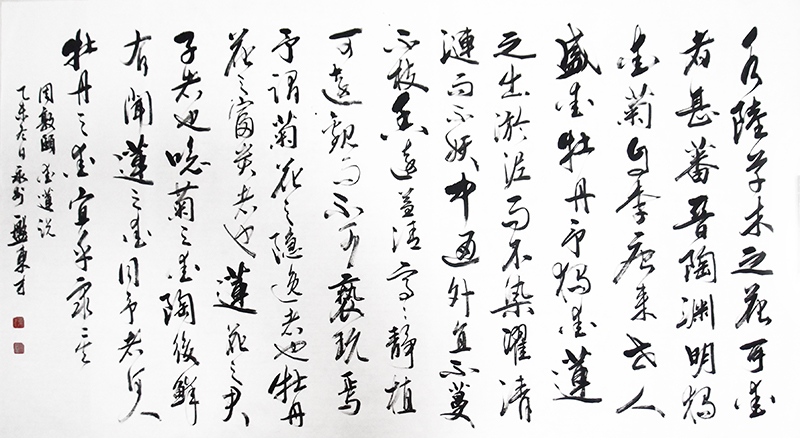 水陸草木之花可愛
者甚蕃晉陶淵明獨
愛菊自李唐来世人
盛愛牡丹予獨愛蓮
之出淤泥而不染濯清
漣而不妖中通外直不蔓
不枝香遠益清亭〻静植
可遠觀而不可褻玩焉
予謂菊花之隱逸者也牡丹
花之富貴者也蓮花之君
子者也噫菊之愛陶後鮮
有聞蓮之愛同予者何人
牡丹之愛宜乎衆矣
周敦頤愛蓮説
乙未冬日永州